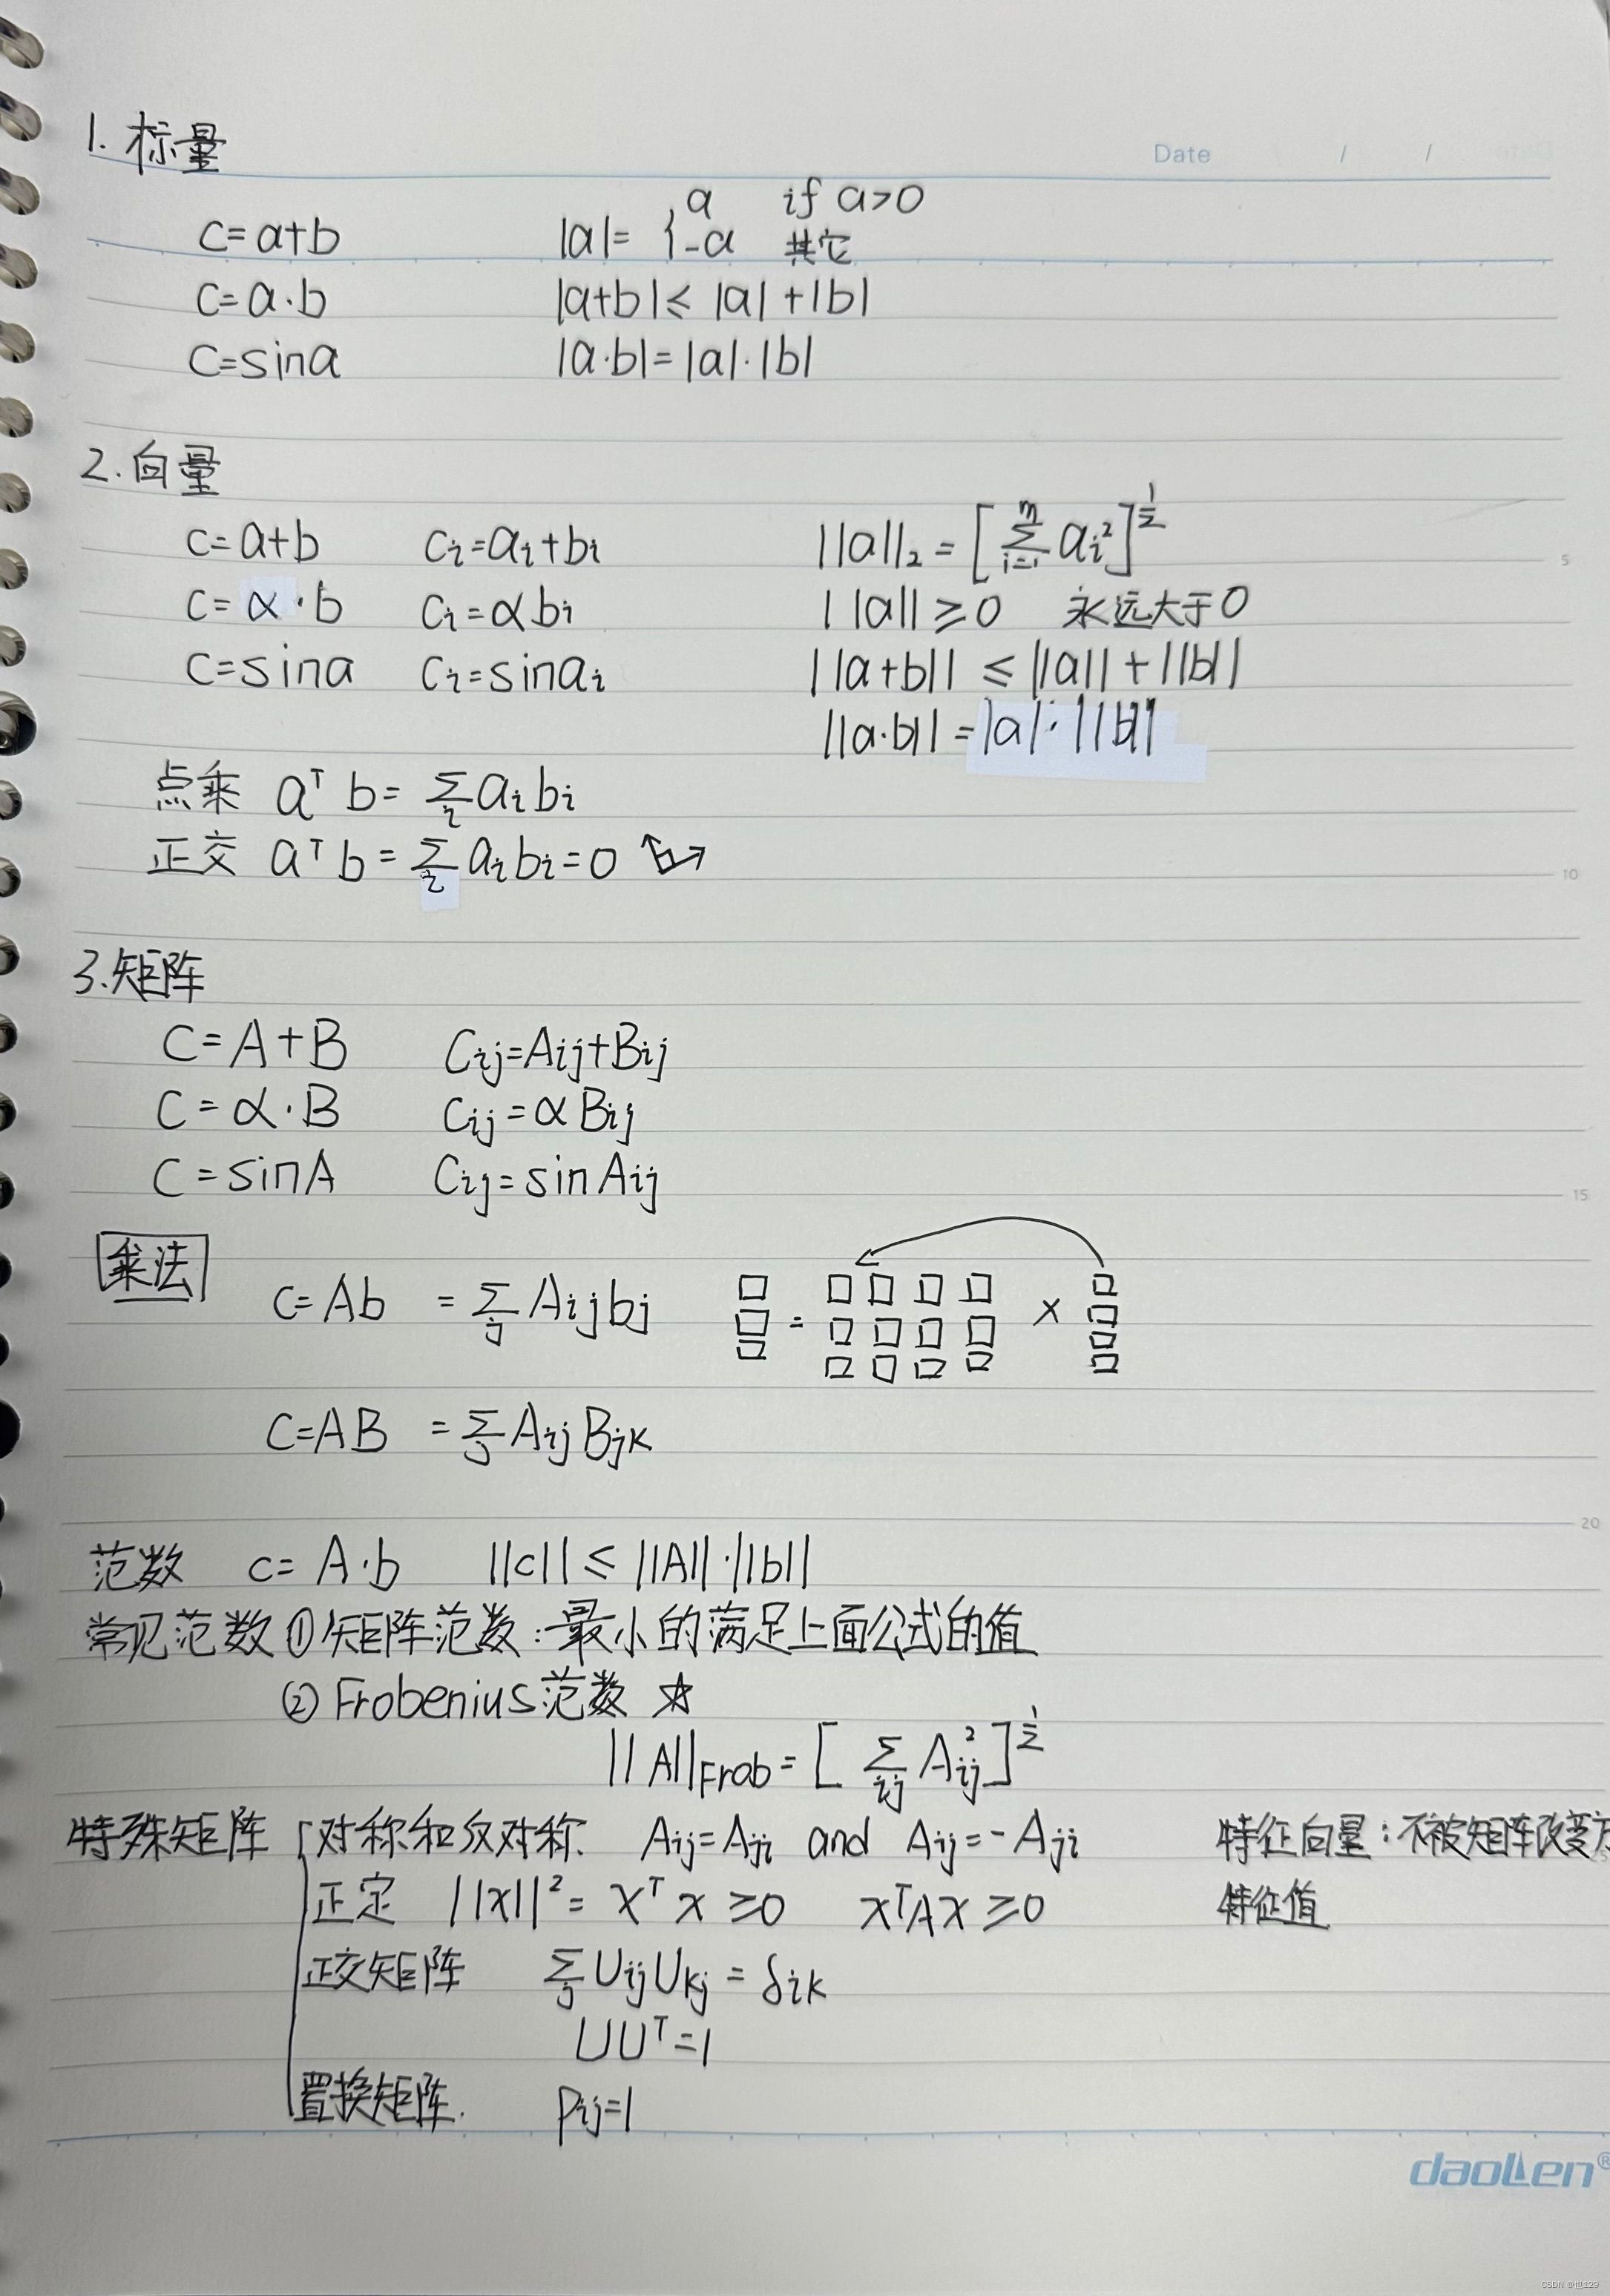 Date / /
1. 标量
c=a+b |a|= { a if a>0
-a 其它
c=a·b |a+b|≤|a|+|b|
c=sina |a·b|=|a|·|b|
2.向量
c=a+b ci=ai+bi ||a||₂=[∑(i=1..m) ai²]^½
c=α·b ci=αbi ||a||≥0 永远大于0
c=sina ci=sinai ||a+b||≤||a||+||b||
||a·b||=|a|·||b||
点乘 aᵀb=∑i aibi
正交 aᵀb=∑i aibi=0
3.矩阵
C=A+B Cij=Aij+Bij
C=α·B Cij=αBij
C=sinA Cij=sinAij
乘法
c=Ab =∑j Aijbj = ×
C=AB =∑j AijBjk
范数 c=A·b ||c||≤||A||·||b||
常见范数 ①矩阵范数:最小的满足上面公式的值
②Frobenius范数 ☆
||A||Frob=[∑ij Aij²]^½
特殊矩阵 对称和反对称. Aij=Aji and Aij=-Aji 特征向量:不被矩阵改变方
正定 ||x||²=xᵀx≥0 xᵀAx≥0 特征值
正交矩阵 ∑j UijUkj=δik
UUᵀ=1
置换矩阵. Pij=1
5
10
15
20
daolen®